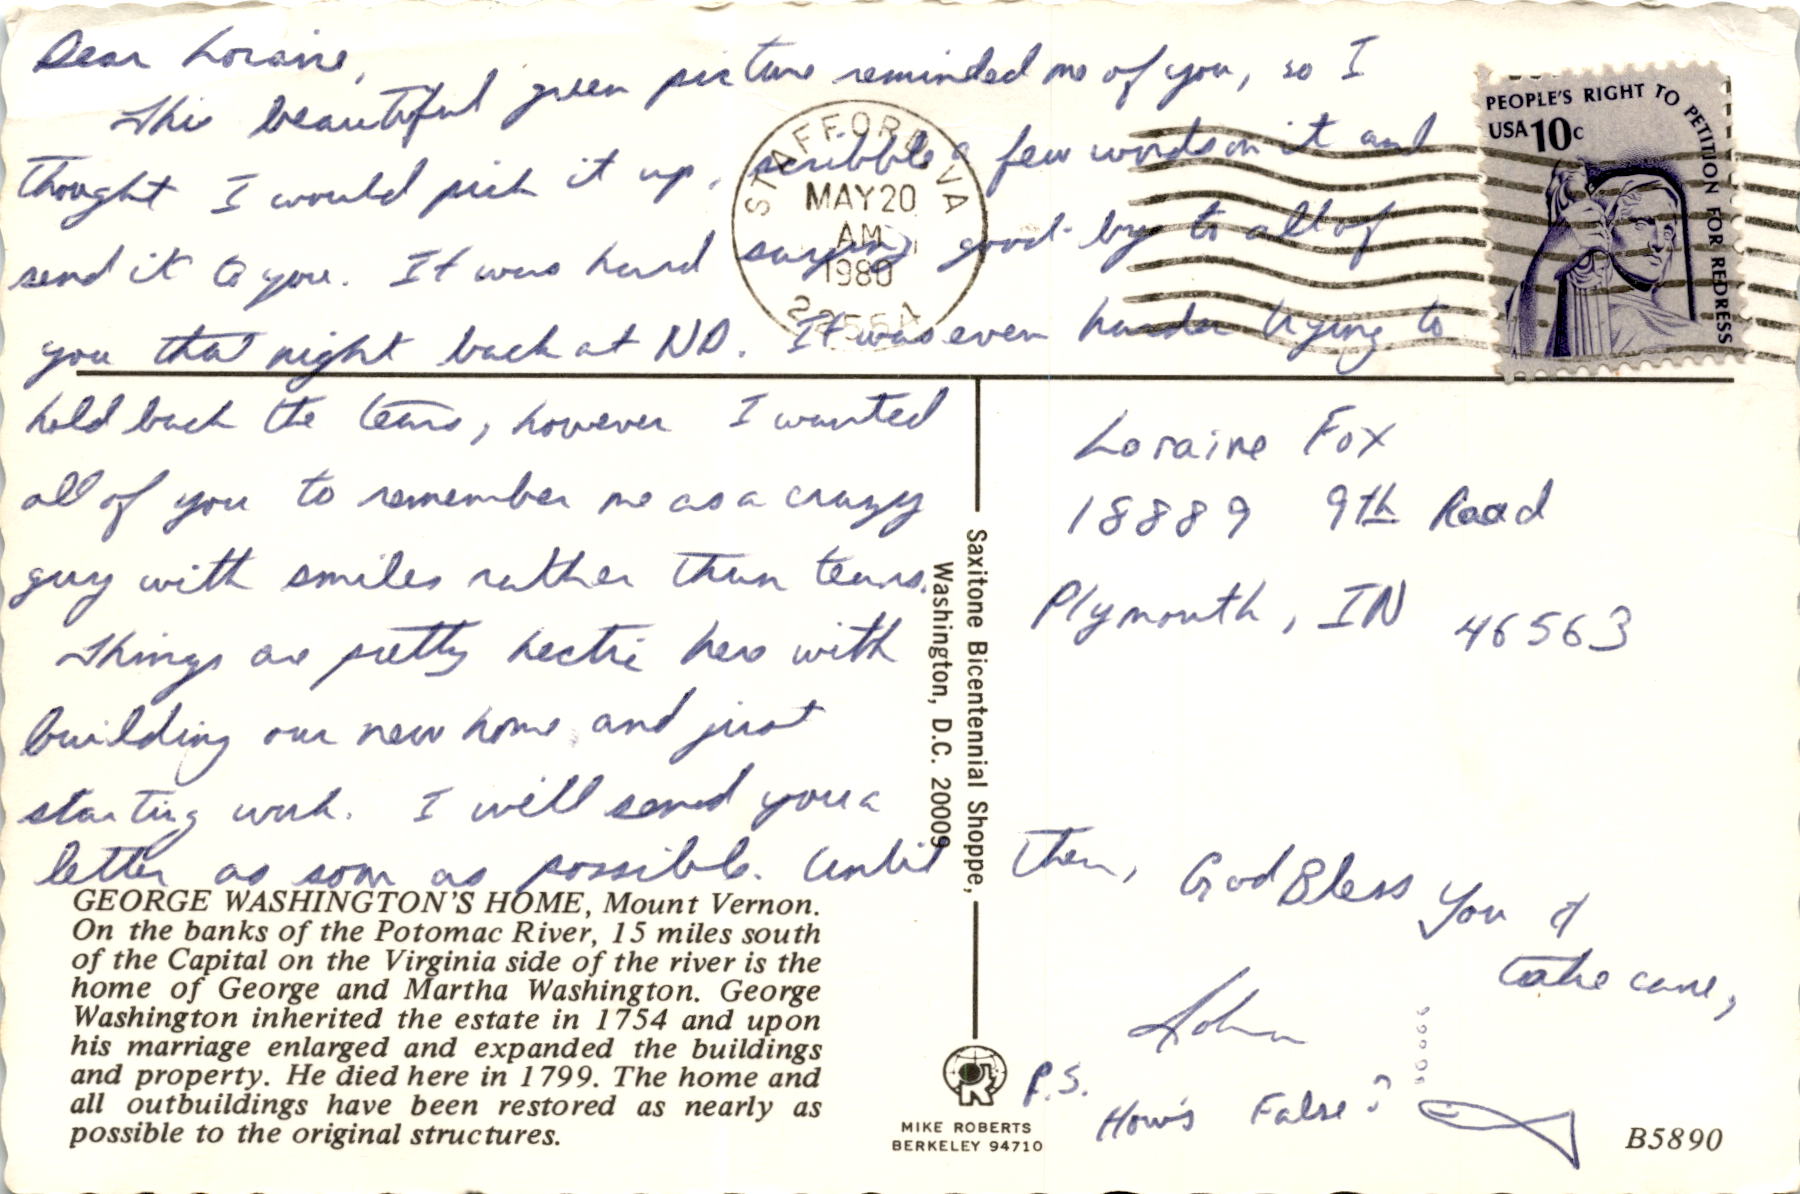 Dear Loraine,
This beautiful green picture reminded me of you, so I
thought I would pick it up, scribble a few words on it and
send it to you. It was hard saying good-by to all of
you that night back at ND. It was even harder trying to
hold back the tears, however I wanted
all of you to remember me as a crazy
guy with smiles rather than tears.
Things are pretty hectic here with
building our new home and just
starting work. I will send you a
letter as soon as possible. Until then, God Bless You &
take care,
John
P.S.
How's False?
STAFFORD VA
MAY 20
AM
1980
22554
PEOPLE'S RIGHT TO PETITION FOR REDRESS
USA 10c
Loraine Fox
18889 9th Road
Plymouth, IN 46563
Saxitone Bicentennial Shoppe,
Washington, D.C. 20009
GEORGE WASHINGTON'S HOME, Mount Vernon.
On the banks of the Potomac River, 15 miles south
of the Capital on the Virginia side of the river is the
home of George and Martha Washington. George
Washington inherited the estate in 1754 and upon
his marriage enlarged and expanded the buildings
and property. He died here in 1799. The home and
all outbuildings have been restored as nearly as
possible to the original structures.
R
MIKE ROBERTS
BERKELEY 94710
B5890